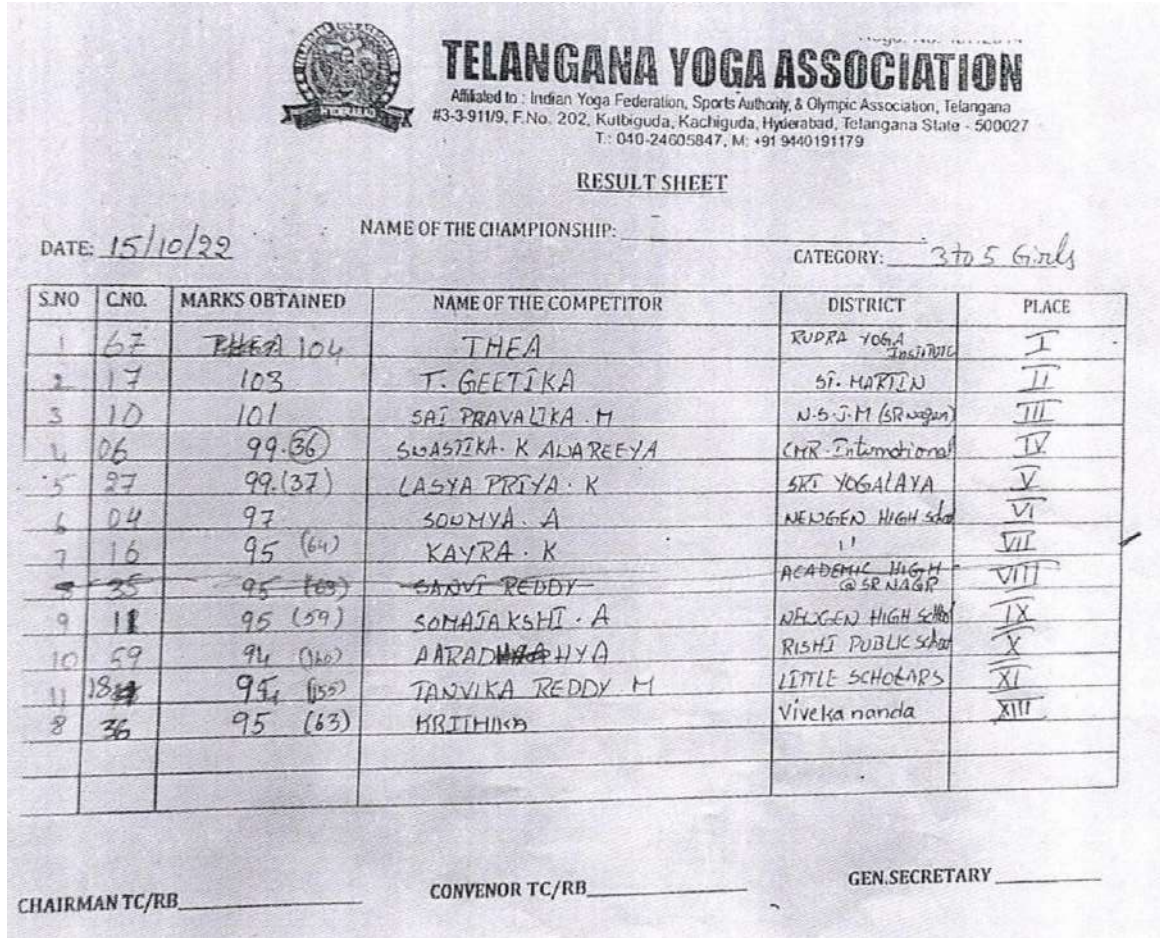 TELANGANA YOGA ASSOCIATION
Affiliated to : Indian Yoga Federation, Sports Authority, & Olympic Association, Telangana
#3-3-911/9, F.No. 202, Kutbiguda, Kachiguda, Hyderabad, Telangana State - 500027
T.: 040-24605847, M: +91 9440191179
RESULT SHEET
NAME OF THE CHAMPIONSHIP:
DATE: 15/10/22
CATEGORY: 3 to 5 Girls
S.NO C.NO. MARKS OBTAINED NAME OF THE COMPETITOR DISTRICT PLACE
1 67 104 THEA RUDRA YOGA INSTITUTE I
2 17 103 T. GEETIKA ST. MARTIN II
3 10 101 SAI PRAVALIKA . M N.S.J.M (SR nagar) III
4 06 99.36 SWASTIKA. K ALAREEYA CMR. International IV
5 27 99.(37) LASYA PRIYA. K SRI YOGALAYA V
6 04 97 SOUMYA. A NEWGEN HIGH School VI
7 16 95 (64) KAYRA. K 11 VII
8 35 95 (63) SANVI REDDY ACADEMIC HIGH @ SR NAGR VIII
9 11 95 (59) SOMAJAKSHI . A NEWGEN HIGH School IX
10 59 94 (160) AARADHYA RISHI PUBLIC School X
11 18 94 (155) TANVIKA REDDY M LITTLE SCHOLARS XI
8 36 95 (63) KRITHIKA Viveka nanda XIII
CHAIRMAN TC/RB CONVENOR TC/RB GEN.SECRETARY